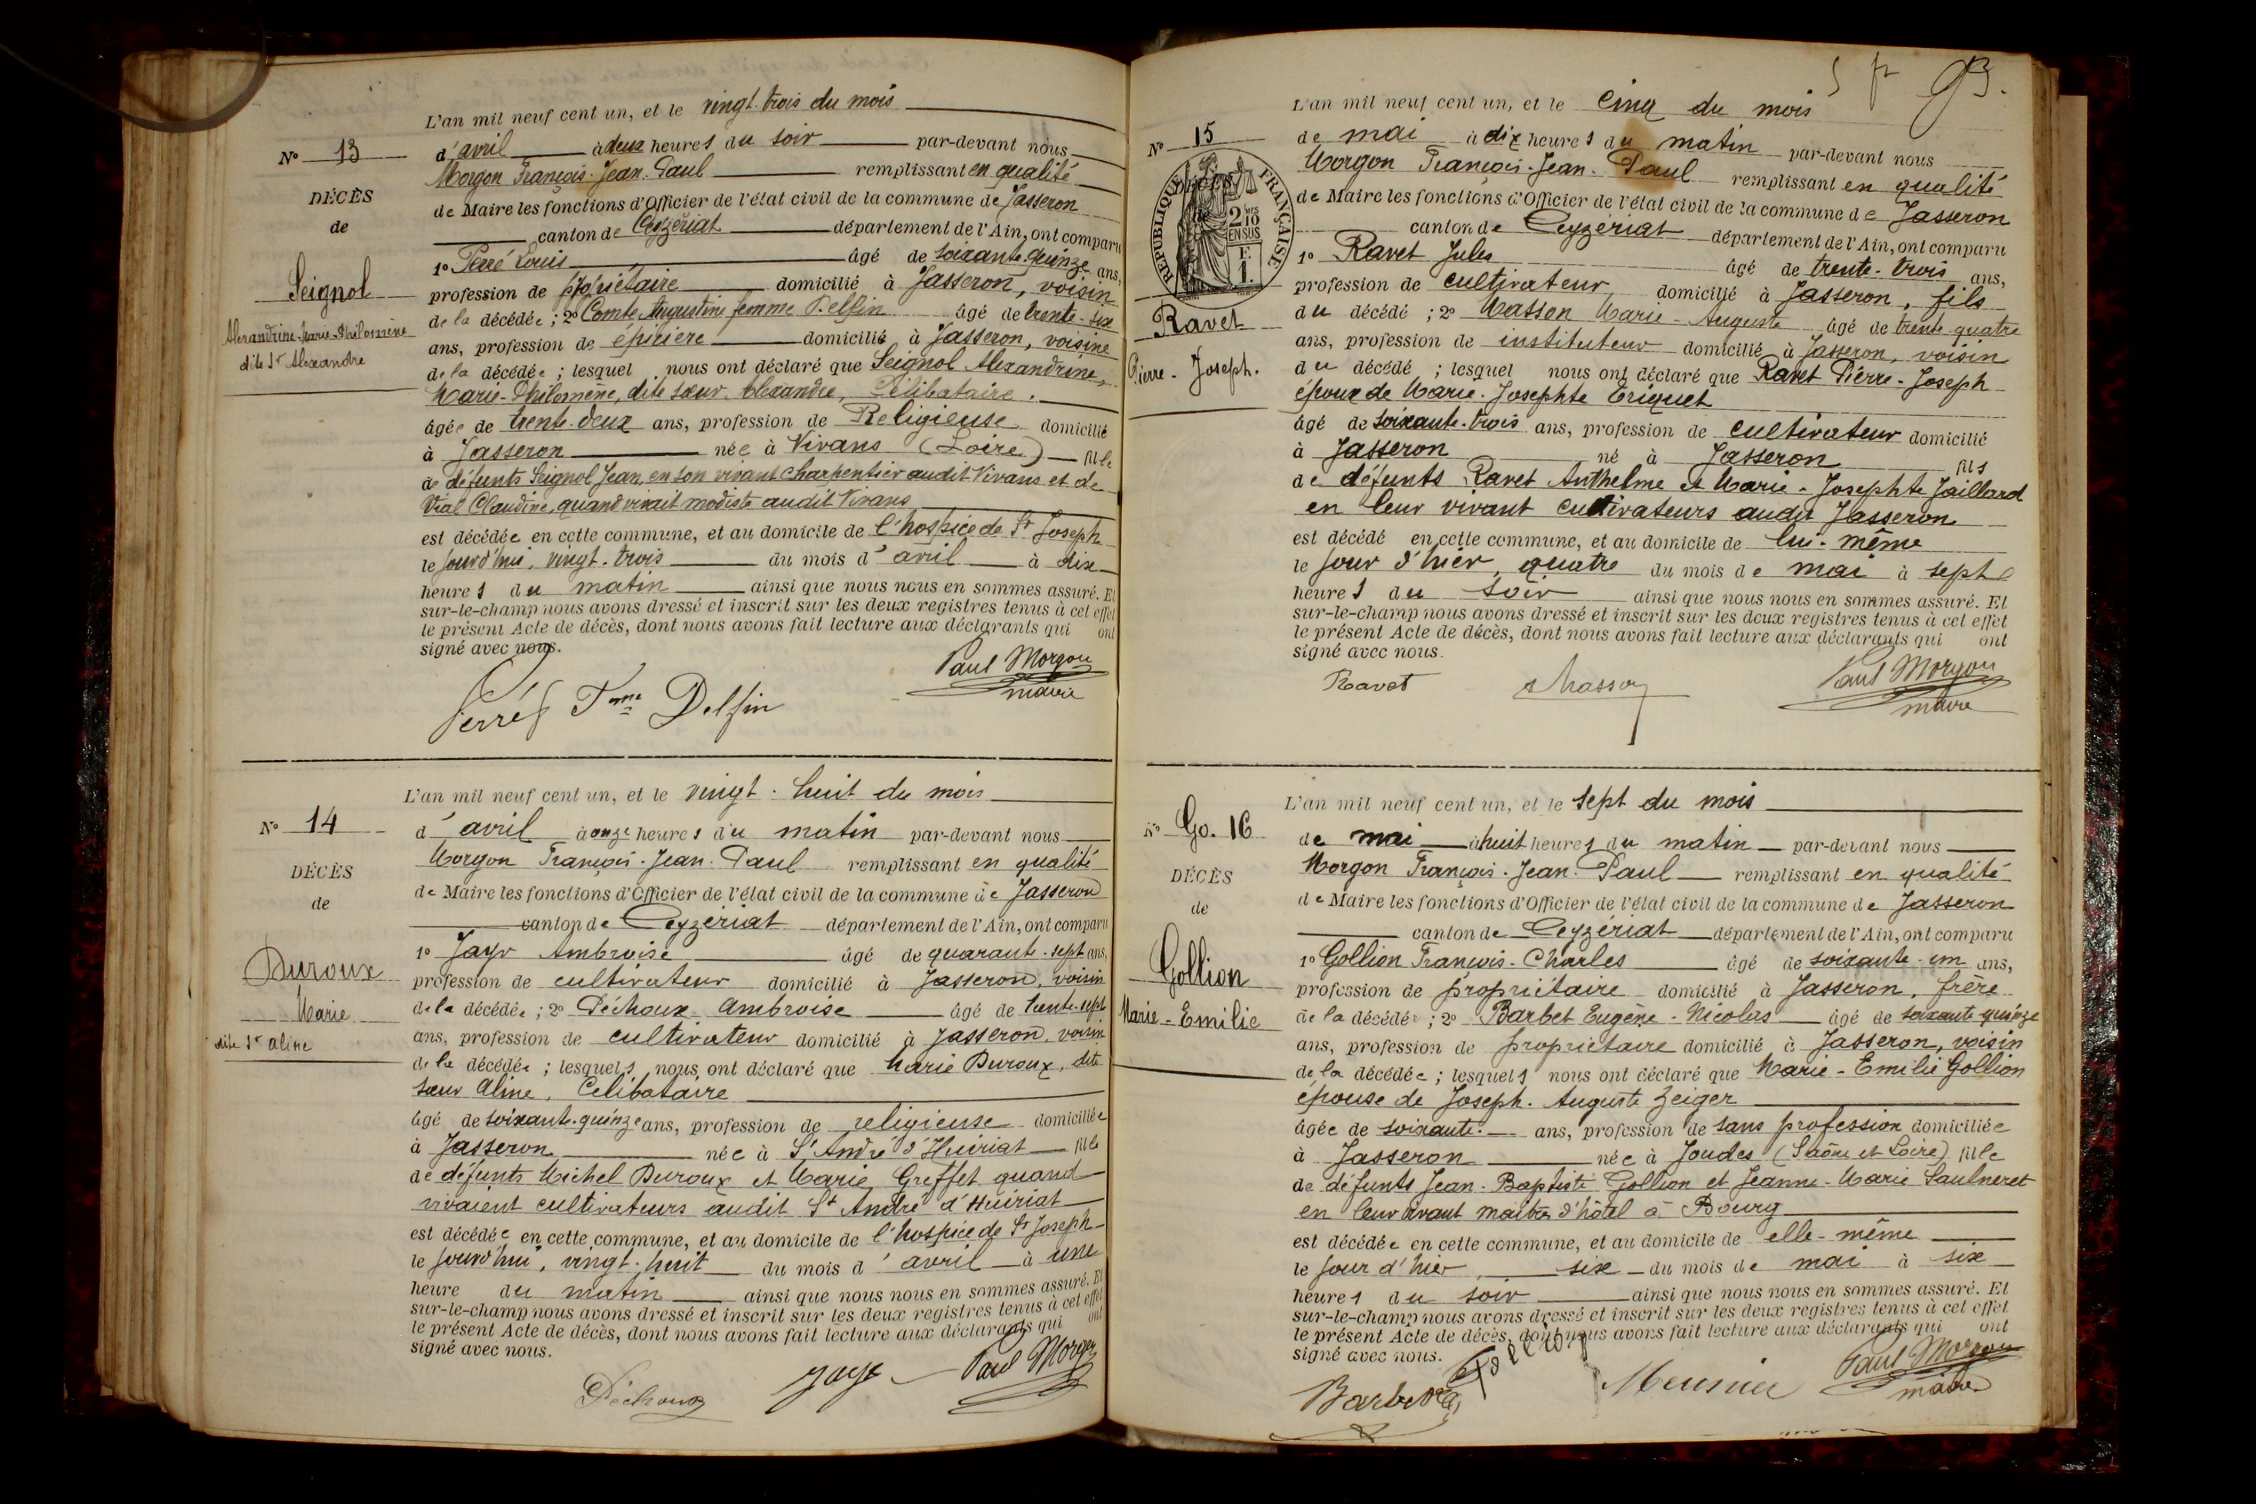 L'an mil neuf cent un, et le vingt-trois du mois
N° 13
d'avril à deux heures du soir par-devant nous
Morgon François-Jean-Paul remplissant en qualité
DÉCÈS
de Maire les fonctions d'Officier de l'état civil de la commune de Jasseron
de
canton de Ceyzériat département de l'Ain, ont comparu
1° Perré Louis âgé de soixante-quinze ans,
Seignol
profession de propriétaire domicilié à Jasseron, voisin
de la décédée ; 2° Comte Augustine femme Delfin âgé de trente-six
Alexandrine-Marie-Philomène
ans, profession de épicière domicilié à Jasseron, voisine
dite Sr Alexandre
de la décédée ; lesquel nous ont déclaré que Seignol Alexandrine,
Marie-Philomène, dite sœur Alexandre, Célibataire.
âgée de trente-deux ans, profession de Religieuse domicilié
à Jasseron née à Vivans (Loire) fille
de défunts Seignol Jean, en son vivant charpentier audit Vivans et de
Vial Claudine, quand vivait modiste audit Vivans
est décédée en cette commune, et au domicile de l'hospice de St Joseph
le jourd'hui, vingt-trois du mois d'avril à dix
heures du matin ainsi que nous nous en sommes assuré. Et
sur-le-champ nous avons dressé et inscrit sur les deux registres tenus à cet effet
le présent Acte de décès, dont nous avons fait lecture aux déclarants qui ont
signé avec nous.
Paul Morgon
maire
Perré Fme Delfin
L'an mil neuf cent un, et le vingt-huit du mois
N° 14
d'avril à onze heures du matin par-devant nous
Morgon François-Jean-Paul remplissant en qualité
DÉCÈS
de Maire les fonctions d'Officier de l'état civil de la commune de Jasseron
de
canton de Ceyzériat département de l'Ain, ont comparu
1° Jayr Ambroise âgé de quarante-sept ans,
Duroux
profession de cultivateur domicilié à Jasseron, voisin
Marie
de la décédée ; 2° Déchoux Ambroise âgé de trente-sept
dite Sr Aline
ans, profession de cultivateur domicilié à Jasseron, voisin
de la décédée ; lesquels nous ont déclaré que Marie Duroux, dite
sœur Aline, Célibataire
âgé de soixante-quinze ans, profession de religieuse domiciliée
à Jasseron née à St André d'Huiriat fille
de défunts Michel Duroux et Marie Greffet quand
vivaient cultivateurs audit St André d'Huiriat
est décédée en cette commune, et au domicile de l'hospice de St Joseph
le jourd'hui, vingt-huit du mois d'avril à une
heure du matin ainsi que nous nous en sommes assuré. Et
sur-le-champ nous avons dressé et inscrit sur les deux registres tenus à cet effet
le présent Acte de décès, dont nous avons fait lecture aux déclarants qui ont
signé avec nous.
Déchoux Paul Morgon
93.
L'an mil neuf cent un, et le cinq du mois
N° 15
de mai à dix heures du matin par-devant nous
Morgon François-Jean-Paul remplissant en qualité
DÉCÈS
RÉPUBLIQUE FRANÇAISE
2/10 EN SUS
F. 1.
de Maire les fonctions d'Officier de l'état civil de la commune de Jasseron
canton de Ceyzériat département de l'Ain, ont comparu
1° Ravet Jules âgé de trente-trois ans,
profession de cultivateur domicilié à Jasseron, fils
Ravet
du décédé ; 2° Masson Marie-Auguste âgé de trente-quatre
ans, profession de instituteur domicilié à Jasseron, voisin
Pierre-Joseph.
du décédé ; lesquel nous ont déclaré que Ravet Pierre-Joseph
époux de Marie-Josephte Triquet
âgé de soixante-trois ans, profession de cultivateur domicilié
à Jasseron né à Jasseron fils
de défunts Ravet Anthelme et Marie-Josephte Jaillard
en leur vivant cultivateurs audit Jasseron
est décédé en cette commune, et au domicile de lui-même
le jour d'hier, quatre du mois de mai à sept
heures du soir ainsi que nous nous en sommes assuré. Et
sur-le-champ nous avons dressé et inscrit sur les deux registres tenus à cet effet
le présent Acte de décès, dont nous avons fait lecture aux déclarants qui ont
signé avec nous.
Ravet Masson Paul Morgon
maire
L'an mil neuf cent un, et le sept du mois
N° Go. 16
de mai à huit heures du matin par-devant nous
Morgon François-Jean-Paul remplissant en qualité
DÉCÈS
de Maire les fonctions d'Officier de l'état civil de la commune de Jasseron
de
canton de Ceyzériat département de l'Ain, ont comparu
1° Gollion François-Charles âgé de soixante-un ans,
Gollion
profession de propriétaire domicilié à Jasseron, frère
Marie-Emilie
de la décédée ; 2° Barbet Eugène-Nicolas âgé de soixante-quinze
ans, profession de propriétaire domicilié à Jasseron, voisin
de la décédée ; lesquels nous ont déclaré que Marie-Emilie Gollion
épouse de Joseph-Auguste Zeiger
âgée de soixante ans, profession de sans profession domiciliée
à Jasseron née à Joudes (Saône et Loire) fille
de défunts Jean-Baptiste Gollion et Jeanne-Marie Saulneret
en leur vivant maîtres d'hôtel à Bourg
est décédée en cette commune, et au domicile de elle-même
le jour d'hier, six du mois de mai à six
heures du soir ainsi que nous nous en sommes assuré. Et
sur-le-champ nous avons dressé et inscrit sur les deux registres tenus à cet effet
le présent Acte de décès, dont nous avons fait lecture aux déclarants qui ont
signé avec nous.
Barbet Gollion Meunier Paul Morgon
maire